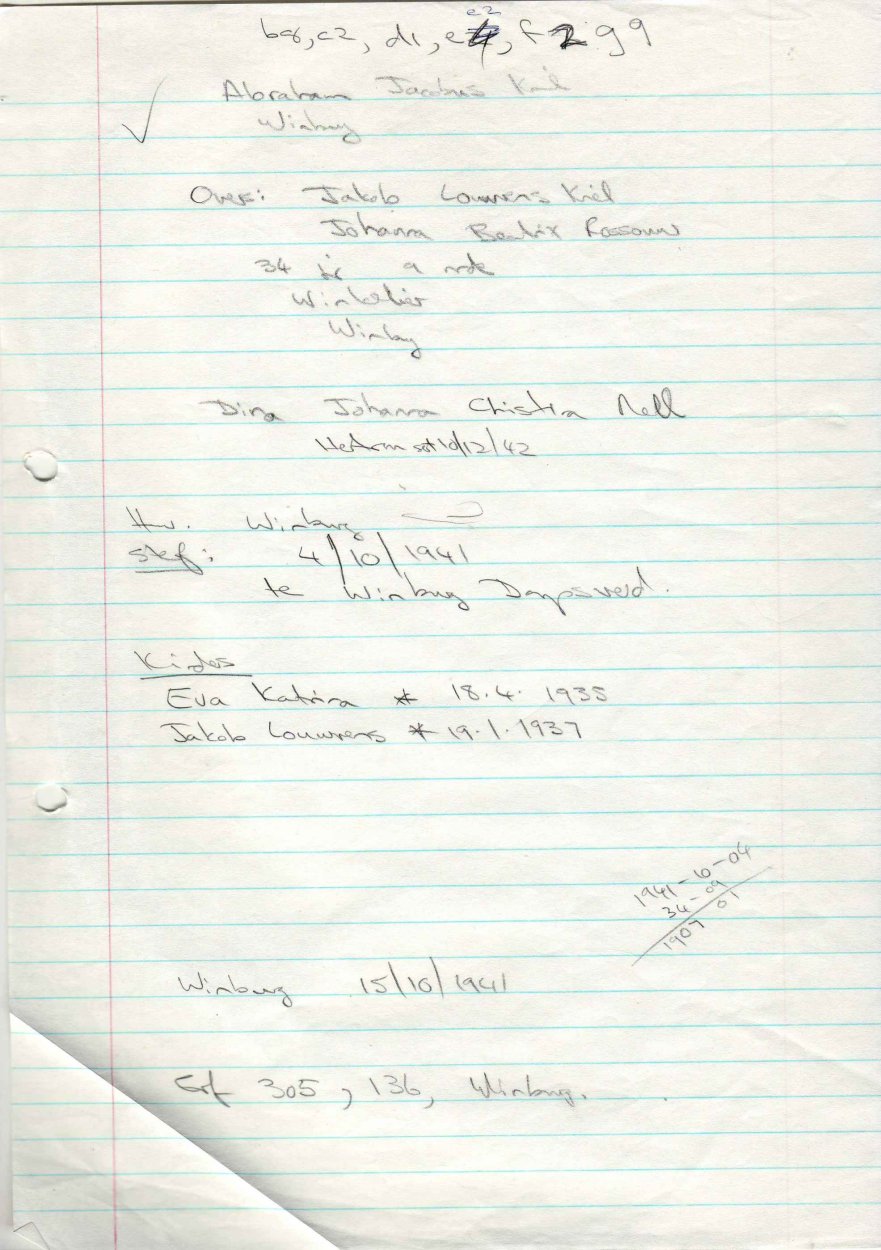 b8, c2, d1, e2, f2 g9
Abraham Jacobus Kriel
Winburg
Ouers: Jakob Louwrens Kriel
Johanna Beatrix Rossouw
34 jr 9 mde
Winkelier
Winburg
Dina Johanna Christina Nell
10/12/42
Hu. Winburg
Sterf: 4/10/1941
te Winburg Dorpsveld.
Kinders
Eva Katrina * 18.4.1935
Jakob Louwrens * 19.1.1937
1941-10-04
34-09
1907 01
Winburg 15/10/1941
Erf 305, 136, Winburg.